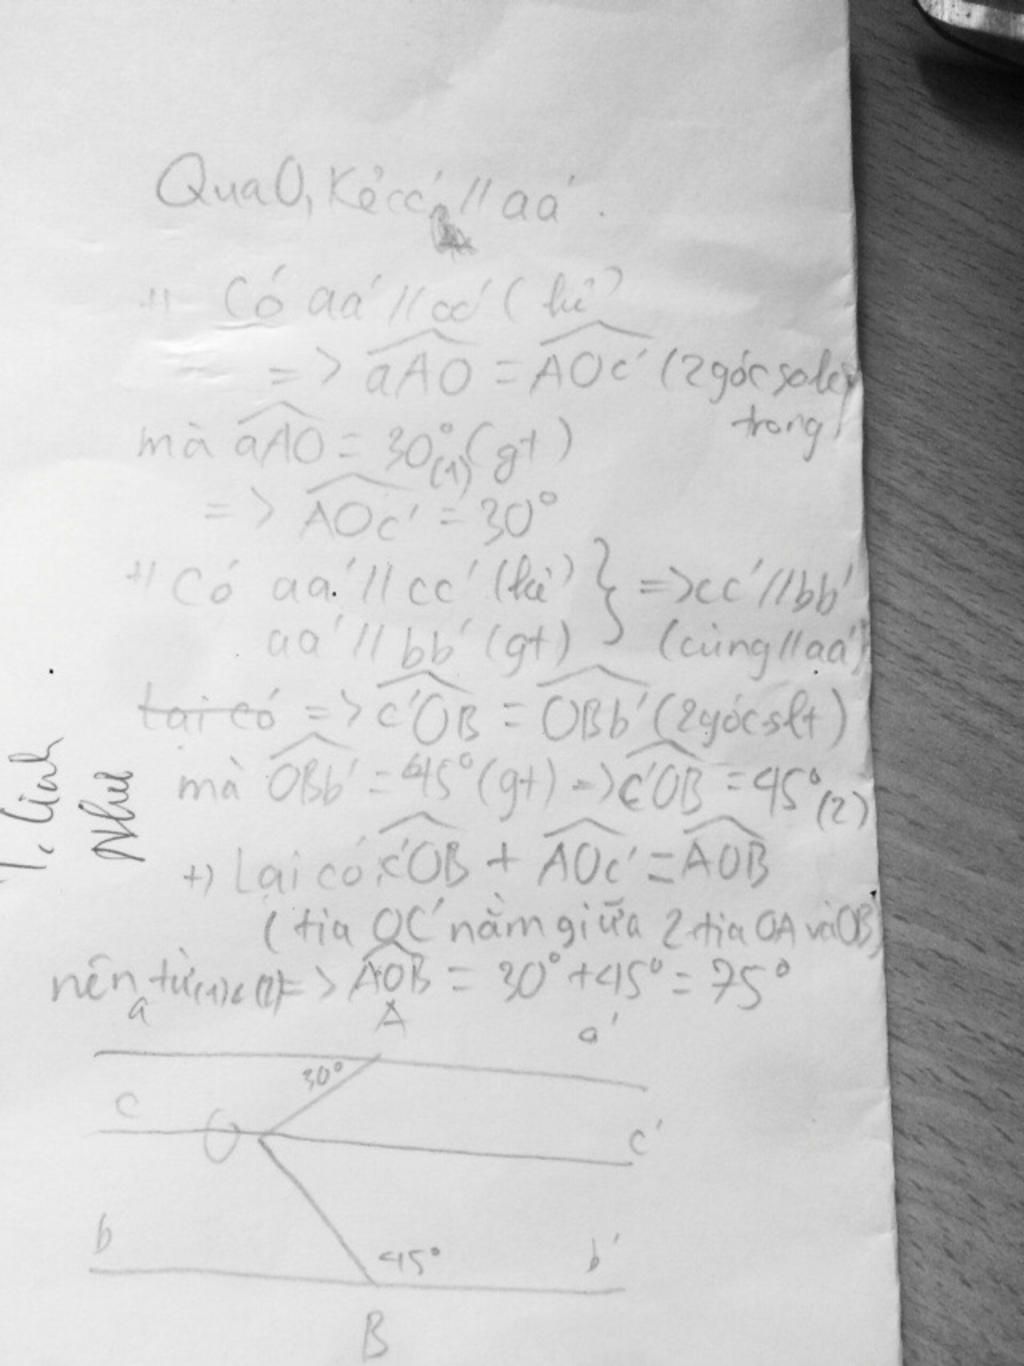 Qua O, Kẻ cc' // aa'.
+) Có aa' // cc' (kẻ)
=> aAO = AOc' (2 góc so le
trong)
mà aAO = 30° (1) (gt)
=> AOc' = 30°
+) Có aa' // cc' (kẻ) } => cc' // bb'
aa' // bb' (gt) (cùng // aa')
lại có => c'OB = OBb' (2 góc slt)
mà OBb' = 45° (gt) => c'OB = 45° (2)
+) Lại có: c'OB + AOc' = AOB
(tia OC' nằm giữa 2 tia OA và OB)
nên từ (1) (2) => AOB = 30° + 45° = 75°
a A a'
30°
c O c'
b 45° b'
B
Như